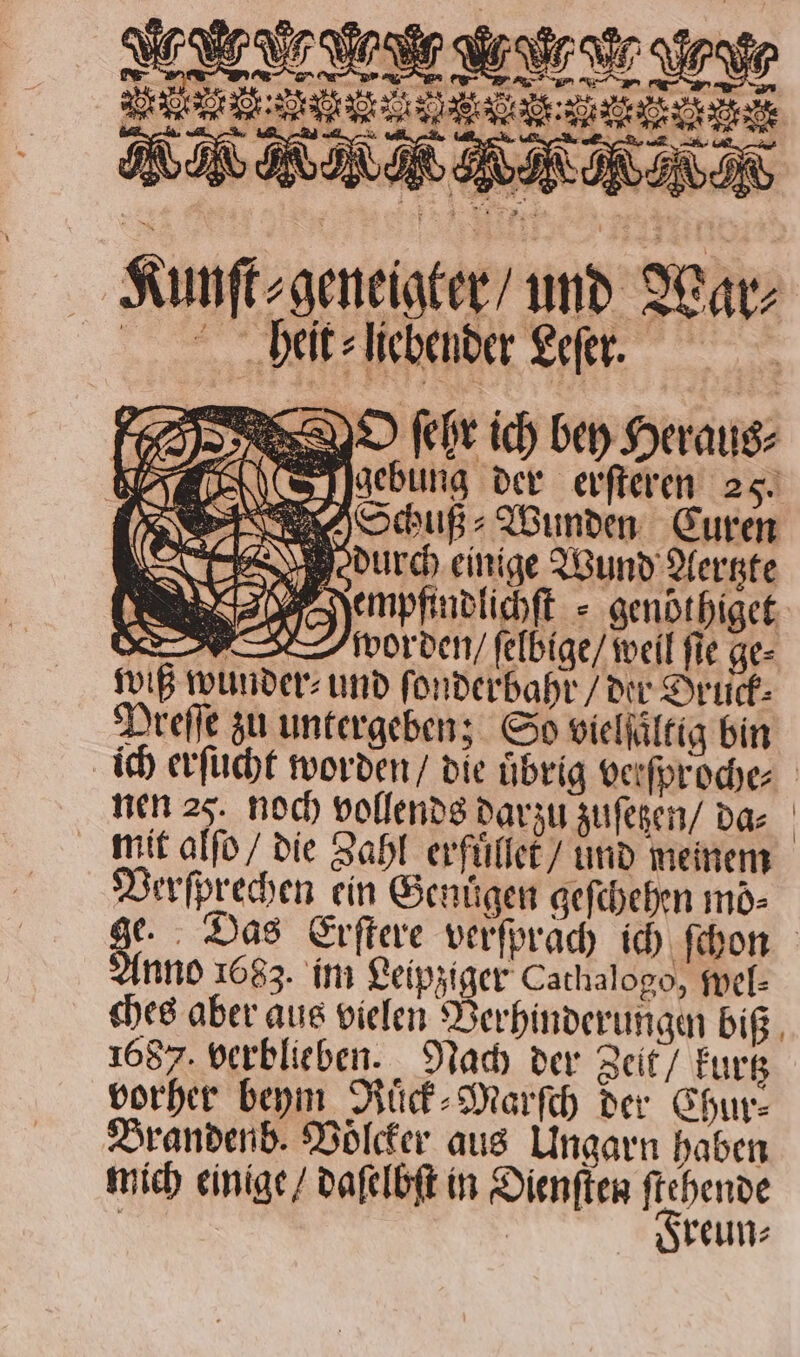 Kunſt⸗geneigter/ und War⸗
heit⸗liebender Leſer.
SO ſehr ich bey Heraus⸗
gebung der erſteren 25.
Schuß⸗Wunden Curen
durch einige Wund Aertzte
empfindlichſt ⸗ genoͤthiget
worden/ ſelbige/ weil ſie ge⸗
wiß wunder⸗ und ſonderbahr / der Druck⸗
Preſſe zu untergeben; So vielfaͤltig bin
ich erſucht worden/ die uͤbrig verſproche⸗
nen 25. noch vollends darzu zuſetzen/ da⸗
mit alſo / die Zahl erfuͤllet / und meinem
Verſprechen ein Genuͤgen geſchehen moͤ⸗
ge. Das Erſtere verſprach ich ſchon
Anno 1683. im Leipziger Cathalogo, wel⸗
ches aber aus vielen Verhinderungen biß
1687. verblieben. Nach der Zeit/ kurtz
vorher beym Ruͤck⸗Marſch der Chur⸗
Brandenb. Voͤlcker aus Ungarn haben
mich einige/ daſelbſt in Dienſten ſtehende
Freun⸗